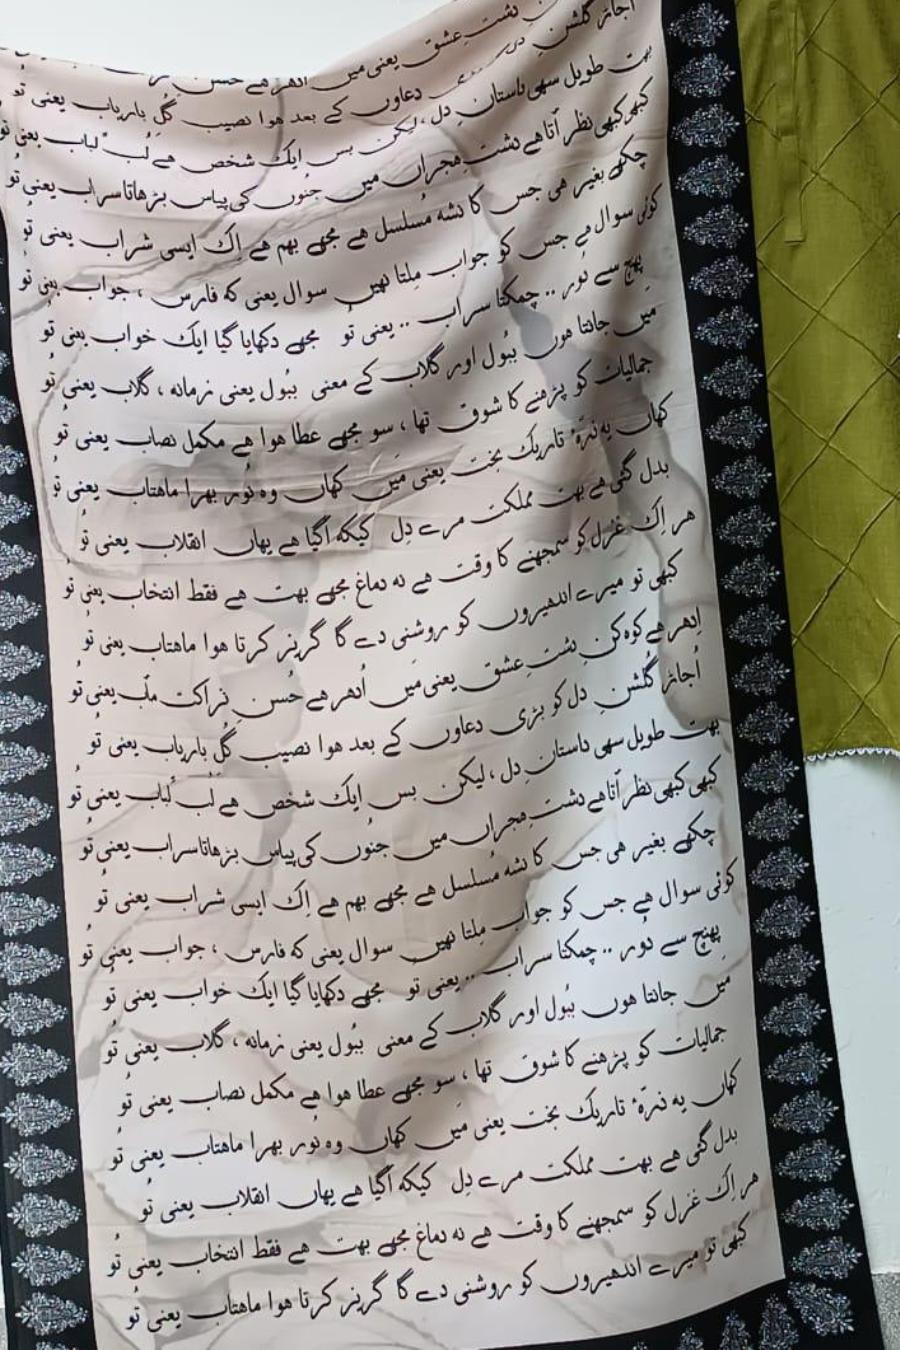 دشتِ عشق یعنی میں اُدھر ہے حسنِ
اُجاڑ گلشنِ دل دعاوں کے بعد ہوا نصیب گُلِ باریاب یعنی تُو
بہت طویل سہی داستانِ دل، لیکن بس ایک شخص ہے لُبِ لُباب یعنی تُو
کبھی کبھی نظر آتا ہے دشتِ ہجراں میں جنُوں کی پیاس بڑھاتا سراب یعنی تُو
چکھے بغیر ہی جس کا نشہ مُسلسل ہے مجھے بہم ہے اِک ایسی شراب یعنی تُو
کوئی سوال ہے جس کو جواب مِلتا نہیں سوال یعنی کہ فارس ، جواب یعنی تُو
پہنچ سے دُور .. چمکتا سراب .. یعنی تُو مجھے دکھایا گیا ایک خواب یعنی تُو
میں جانتا ہوں ببُول اور گلاب کے معنی ببُول یعنی زمانہ ، گلاب یعنی تُو
جمالیات کو پڑھنے کا شوق تھا ، سو مجھے عطا ہوا ہے مکمل نصاب یعنی تُو
کہاں یہ ذرّۂ تاریک بخت یعنی مَیں کہاں وہ نُور بھرا ماھتاب یعنی تُو
بدل گئی ہے بہت مملکت مرے دِل کی کہ آگیا ہے یہاں انقلاب یعنی تُو
ہر اِک غزل کو سمجھنے کا وقت ہے نہ دماغ مجھے بہت ہے فقط انتخاب یعنی تُو
کبھی تو میرے اندھیروں کو روشنی دے گا گریز کرتا ہوا ماھتاب یعنی تُو
اِدھر ہے کوہ کنِ دشتِ عشق یعنی مَیں اُدھر ہے حُسنِ نزاکت مآب یعنی تُو
اُجاڑ گُلشنِ دل کو بڑی دعاوں کے بعد ہوا نصیب گُلِ باریاب یعنی تُو
بہت طویل سہی داستانِ دل ، لیکن بس ایک شخص ہے لُبِ لُباب یعنی تُو
کبھی کبھی نظر آتا ہے دشتِ ہجراں میں جنُوں کی پیاس بڑھاتا سراب یعنی تُو
چکھے بغیر ہی جس کا نشہ مُسلسل ہے مجھے بہم ہے اِک ایسی شراب یعنی تُو
کوئی سوال ہے جس کو جواب مِلتا نہیں سوال یعنی کہ فارس ، جواب یعنی تُو
پہنچ سے دُور .. چمکتا سراب .. یعنی تُو مجھے دکھایا گیا ایک خواب یعنی تُو
میں جانتا ہوں ببُول اور گلاب کے معنی ببُول یعنی زمانہ ، گلاب یعنی تُو
جمالیات کو پڑھنے کا شوق تھا ، سو مجھے عطا ہوا ہے مکمل نصاب یعنی تُو
کہاں یہ ذرّۂ تاریک بخت یعنی مَیں کہاں وہ نُور بھرا ماھتاب یعنی تُو
بدل گئی ہے بہت مملکت مرے دِل کی کہ آگیا ہے یہاں انقلاب یعنی تُو
ہر اِک غزل کو سمجھنے کا وقت ہے نہ دماغ مجھے بہت ہے فقط انتخاب یعنی تُو
کبھی تو میرے اندھیروں کو روشنی دے گا گریز کرتا ہوا ماھتاب یعنی تُو